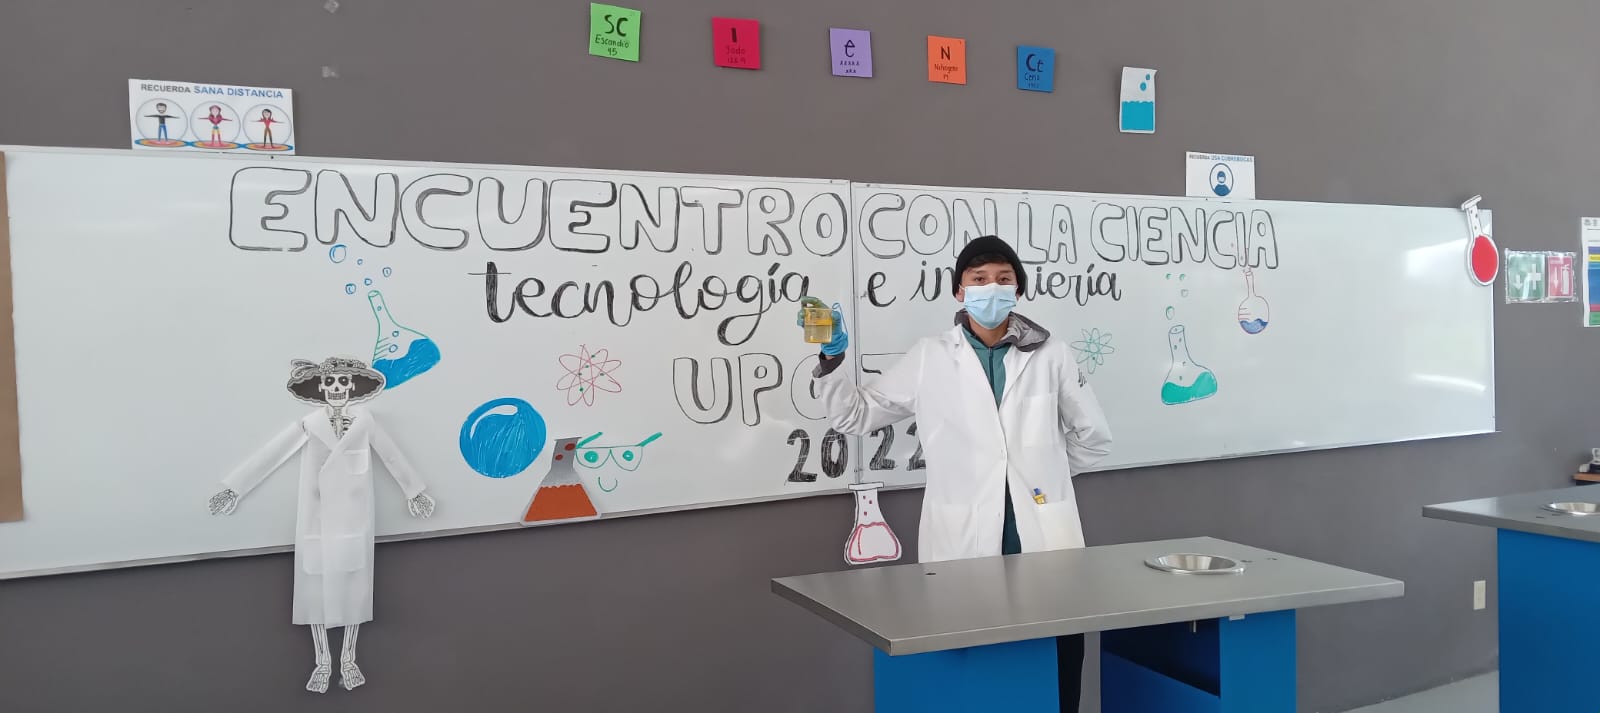 SC
Escandio
45
I
Yodo
126.9
e
N
Nitrogeno
14
Ct
RECUERDA SANA DISTANCIA
RECUERDA USA CUBREBOCAS
ENCUENTRO CON LA CIENCIA
tecnología e in niería
UP
2022